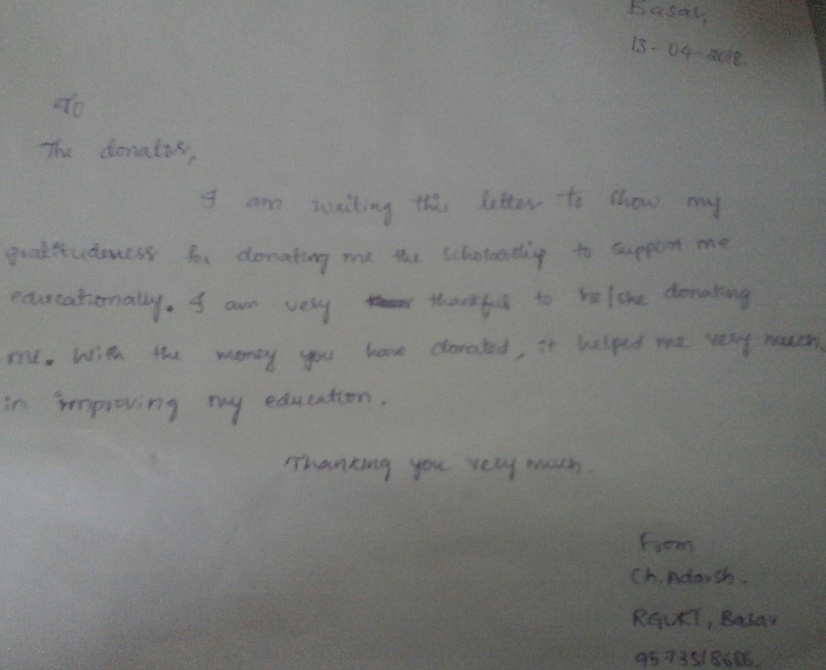 Basar,
13-04-2018.
To
The donator,
I am writing this letter to show my
gratitudeness for donating me the scholarship to support me
educationally. I am very thankful to he/she donating
me. With the money you have donated, it helped me very much
in improving my education.
Thanking you very much.
From
Ch. Adarsh.
RGUKT, Basar